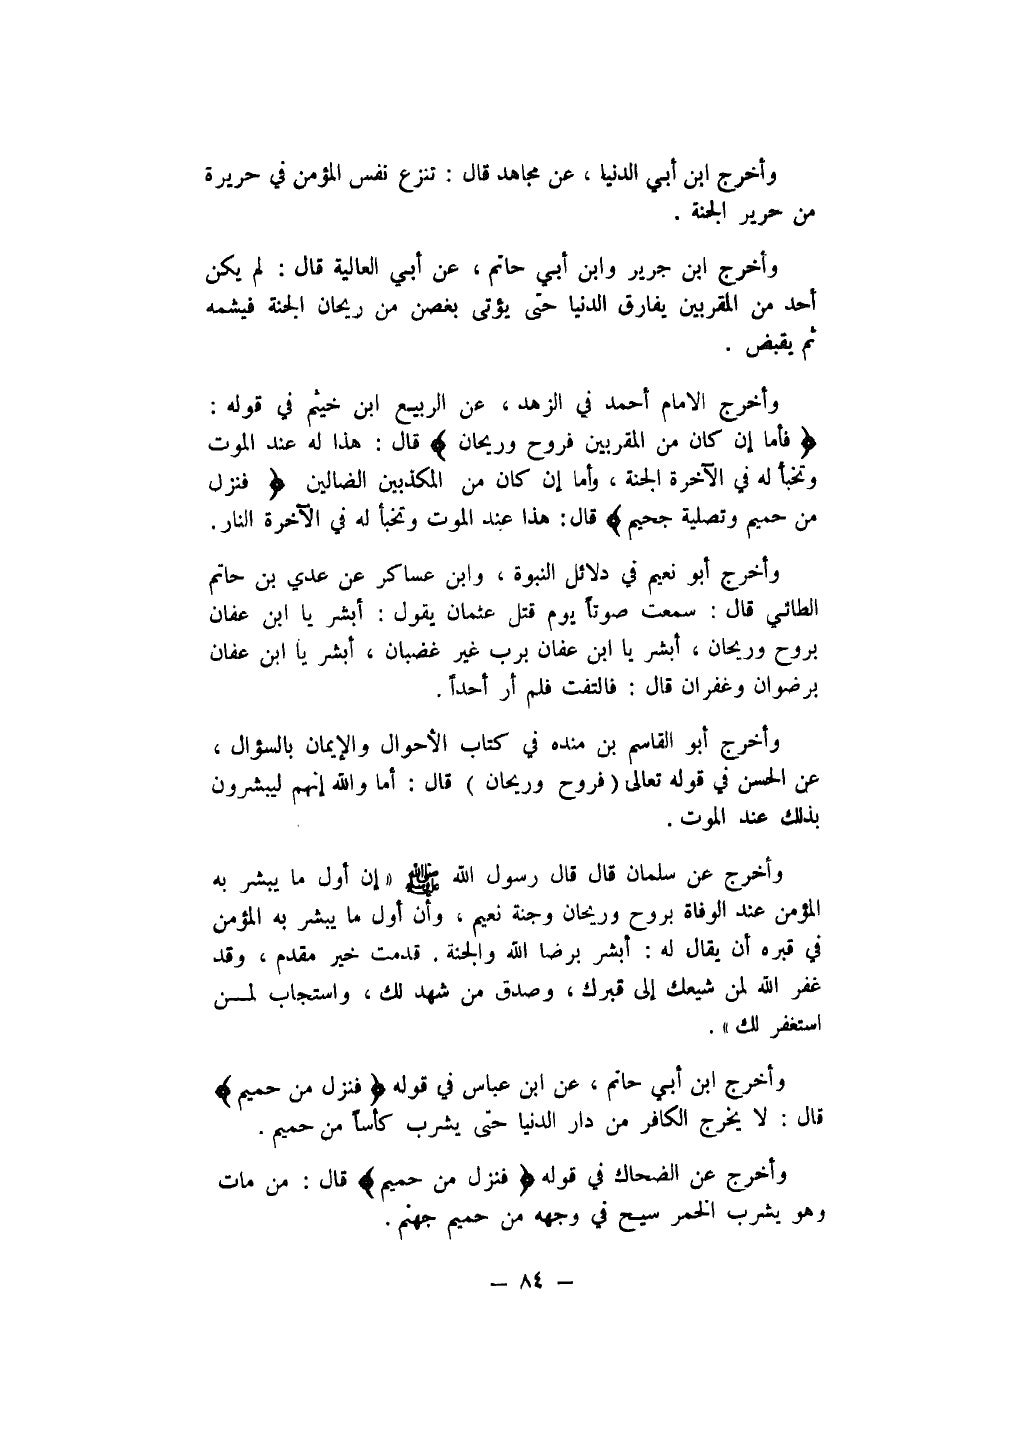 وأخرج ابن أبي الدنيا ، عن مجاهد قال : تنزع نفس المؤمن في حريرة
من حرير الجنة .
وأخرج ابن جرير وابن أبي حاتم ، عن أبي العالية قال : لم يكن
أحد من المقربين يفارق الدنيا حتى يؤتى بغصن من ريحان الجنة فيشمه
ثم يقبض .
وأخرج الامام أحمد في الزهد ، عن الربيع ابن خيثم في قوله :
﴿ فأما إن كان من المقربين فروح وريحان ﴾ قال : هذا له عند الموت
وتخبأ له في الآخرة الجنة ، وأما إن كان من المكذبين الضالين ﴿ فنزل
من حميم وتصلية جحيم ﴾ قال : هذا عند الموت وتخبأ له في الآخرة النار .
وأخرج أبو نعيم في دلائل النبوة ، وابن عساكر عن عدي بن حاتم
الطائي قال : سمعت صوتاً يوم قتل عثمان يقول : أبشر يا ابن عفان
بروح وريحان ، أبشر يا ابن عفان برب غير غضبان ، أبشر يا ابن عفان
برضوان وغفران قال : فالتفت فلم أر أحداً .
وأخرج أبو القاسم بن منده في كتاب الأحوال والإيمان بالسؤال ،
عن الحسن في قوله تعالى ( فروح وريحان ) قال : أما والله إنهم ليبشرون
بذلك عند الموت .
وأخرج عن سلمان قال قال رسول الله ﷺ « إن أول ما يبشر به
المؤمن عند الوفاة بروح وريحان وجنة نعيم ، وأن أول ما يبشر به المؤمن
في قبره أن يقال له : أبشر برضا الله والجنة . قدمت خير مقدم ، وقد
غفر الله لمن شيعك إلى قبرك ، وصدق من شهد لك ، واستجاب لمـــن
استغفر لك » .
وأخرج ابن أبي حاتم ، عن ابن عباس في قوله ﴿ فنزل من حميم ﴾
قال : لا يخرج الكافر من دار الدنيا حتى يشرب كأساً من حميم .
وأخرج عن الضحاك في قوله ﴿ فنزل من حميم ﴾ قال : من مات
وهو يشرب الخمر سيح في وجهه من حميم جهنم .
— ٨٤ —